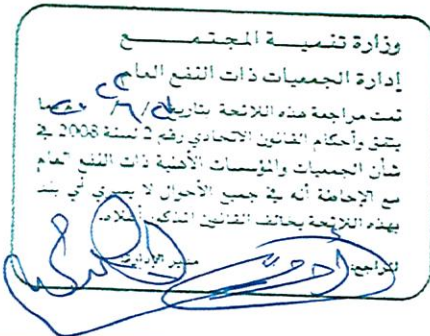 وزارة تنميـــة المجتمـــــــع
إدارة الجمعيات ذات النفع العام
تمت مراجعة هذه اللائحة بتاريخ
يتفق وأحكام القانون الاتحادي رقم 2 لسنة 2008 في
شأن الجمعيات والمؤسسات الأهلية ذات النفع العام
مع الإحاطة أنه في جميع الأحوال لا يسري أي بند
بهذه اللائحة يخالف القانون المذكور أعلاه.
المراجع: مدير الإدارة: